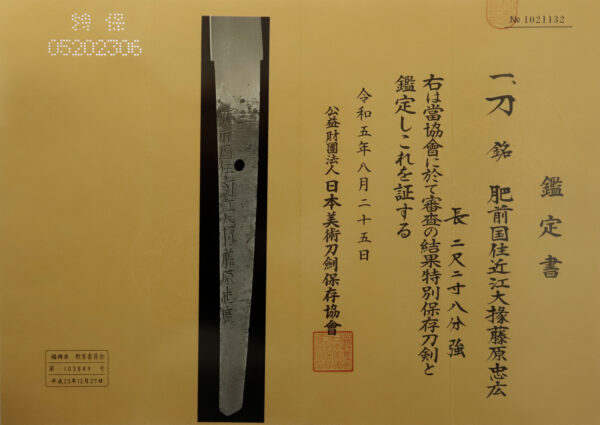 鑑定書
一、刀 銘 肥前国住近江大掾藤原忠広
長 二尺二寸八分強
右は當協會に於て審査の結果特別保存刀劍と
鑑定しこれを証する
令和五年八月二十五日
公益財團法人 日本美術刀劍保存協會
№ 1021132
特保
05202306
肥前国住近江大掾藤原忠廣
教育委員会
第 103849 号
平成23年12月27日